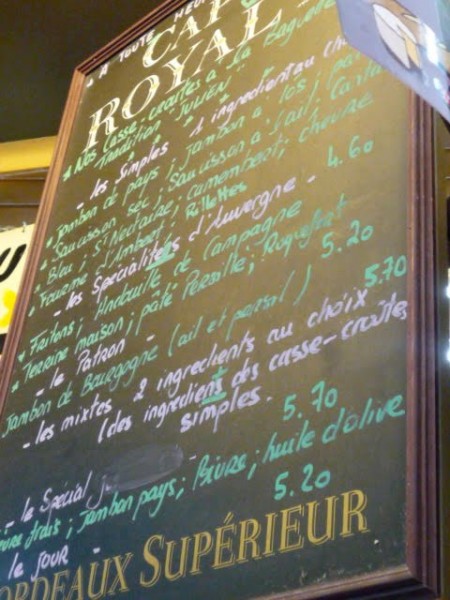 A TOUTE HEU
CAP
ROYAL
* Nos Casse-croûtes à la Baguette
Tradition "JULIEN"
- les Simples 1 ingrédient au ch
* Jambon de pays; Jambon à l'os;
* Saucisson sec; Saucisson à l'ail; Cantal
* Bleu; St Nectaire; camembert; chèvre
* Fourme d'Ambert; Rillettes 4.60
- les Spécialitées d'Auvergne -
* Fritons; Andouille de Campagne
* Terrine maison; pâté Persillé; Roquefort
- le Patron - 5.20
Jambon de Bourgogne (ail et persil)
- les mixtes 2 ingrédients au choix 5.70
(des ingrédients des casse-croûtes
simples.
- le Spécial j - 5.70
frais; Jambon pays; Poivre; huile d'olive
le JOUR - 5.20
BORDEAUX SUPÉRIEUR